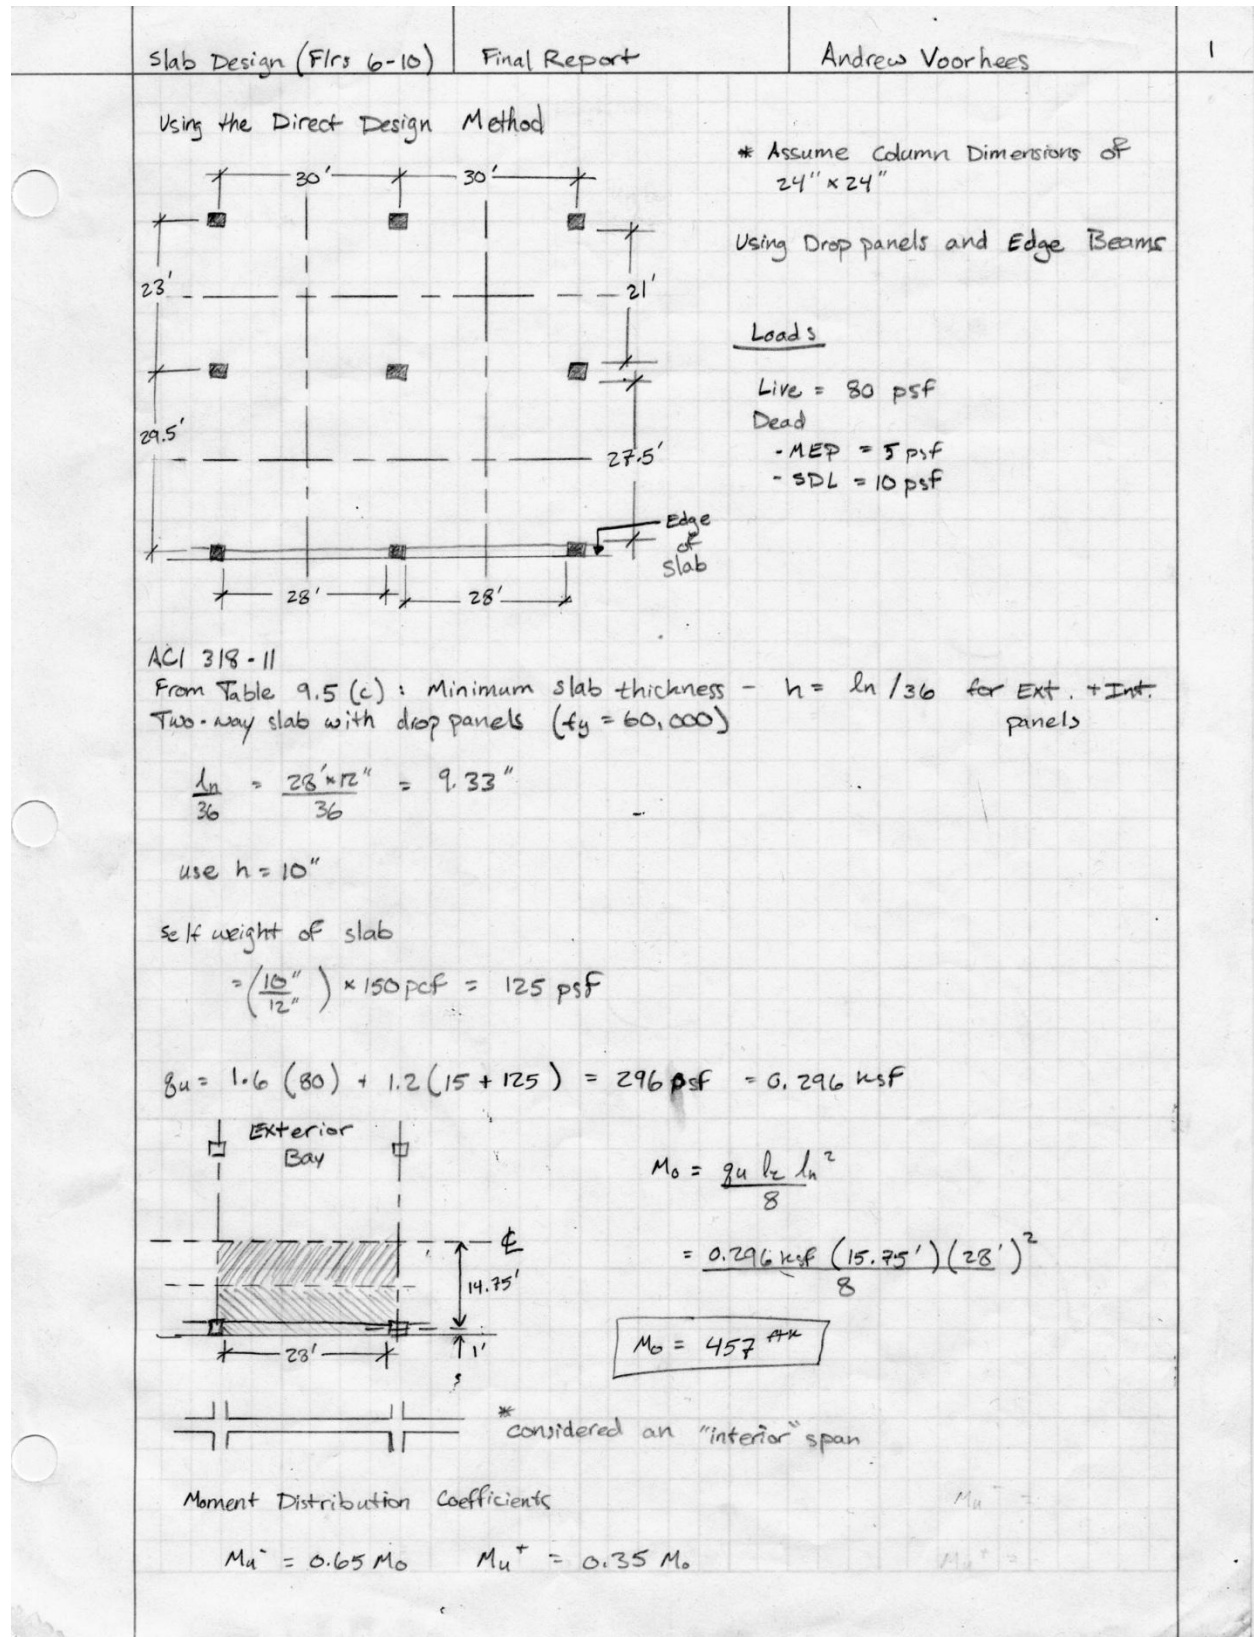 Slab Design (Flrs 6-10) Final Report Andrew Voorhees 1
Using the Direct Design Method
* Assume Column Dimensions of
24" x 24"
30' 30'
Using Drop panels and Edge Beams
23' 21'
Loads
Live = 80 psf
Dead
- MEP = 5 psf
- SDL = 10 psf
29.5' 27.5'
Edge
of
Slab
28' 28'
ACI 318-11
From Table 9.5 (c) : Minimum slab thickness - h = ln /36 for Ext. + Int.
Two-way slab with drop panels (fy = 60,000) panels
ln/36 = 28' x 12"/36 = 9.33"
use h = 10"
self weight of slab
= (10"/12") x 150 pcf = 125 psf
qu = 1.6 (80) + 1.2 (15 + 125) = 296 psf = 0.296 ksf
Exterior
Bay
Mo = qu l2 ln²/8
= 0.296 ksf (15.75') (28')²/8
℄
14.75'
Mo = 457 ftk
28' 1'
* considered an "interior" span
Moment Distribution Coefficients
Mu⁻ =
Mu⁻ = 0.65 Mo Mu⁺ = 0.35 Mo
Mu⁺ =